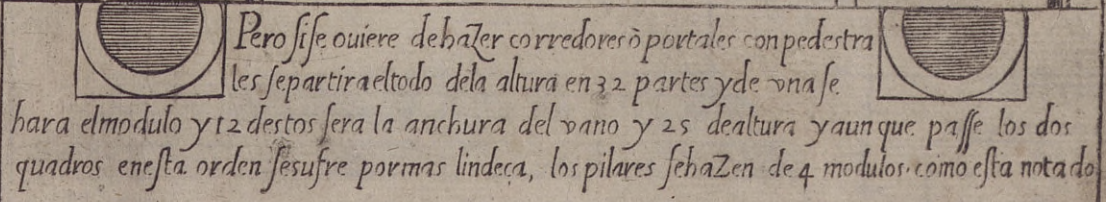 Pero si se ouiere de hazer corredores ò portales con pedestra
les se partira el todo de la altura en 32 partes y de vna se
hara el modulo y 12 destos sera la anchura del vano y 25 de altura y aunque passe los dos
quadros en esta orden se sufre por mas lindeça, los pilares se hazen de 4 modulos. como esta notado